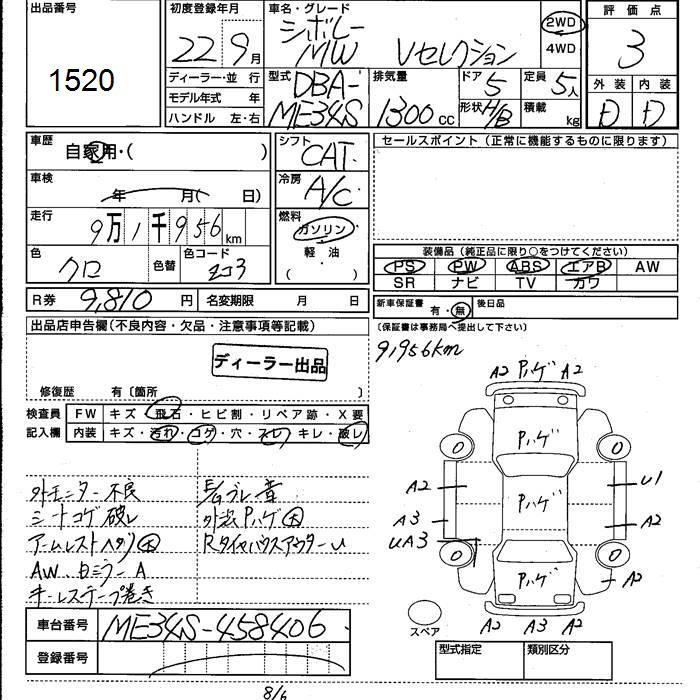 出品番号
1520
初度登録年月
22 9月
車名・グレード
シボレー
MW Vセレクション
2WD
4WD
評価点
3
ディーラー・並 行
モデル年式 年
ハンドル 左・右
型式
DBA-
ME34S
排気量
1300cc
ドア 5
形状 H/B
定員 5人
積載 kg
外装 内装
D D
車歴
自家用・( )
車検
年 月( 日)
走行
9万1千956km
色
クロ
色替
色コード
ZJ3
シフト
CAT
冷房
A/C
燃料
ガソリン
軽油
( )
セールスポイント(正常に機能するものに限ります)
装備品(純正品に限り○をつけてください)
PS PW ABS エアB AW
SR ナビ TV カワ
R券 9,810円 名変期限 月 日
新車保証書 有・無 後日品
(保証書は事務局へ提出して下さい)
9,956km
出品店申告欄(不良内容・欠品・注意事項等記載)
ディーラー出品
修復歴 有〔箇所 〕
検査員
記入欄
FW キズ・飛石・ヒビ割・リペア跡・X要
内装 キズ・汚れ・コゲ・穴・スレ・キレ・破レ
外モニター不良
シートコゲ破レ
アームレストヘタリ大
AW、Bミラー A
キーレステープ巻き
外装Pハゲ大
RタイヤハウスアウターU
A2 Pハゲ A2
Pハゲ
A2 Pハゲ U1
A3 A2
UA3
Pハゲ A2
A2 A3 A2
スペア
車台番号 ME34S-458406
登録番号
型式指定 類別区分
8/6